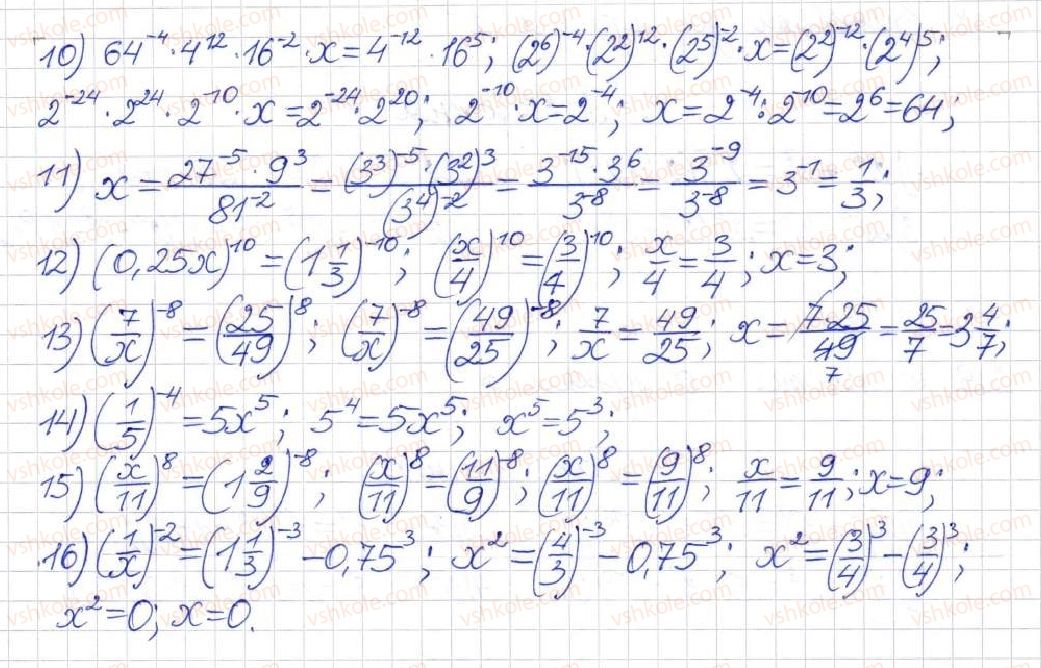 10) 64^-4 · 4^12 · 16^-2 · x = 4^-12 · 16^5; (2^6)^-4 · (2^2)^12 · (2^5)^-2 · x = (2^2)^-12 · (2^4)^5;
2^-24 · 2^24 · 2^-10 · x = 2^-24 · 2^20; 2^-10 · x = 2^-4; x = 2^-4 : 2^-10 = 2^6 = 64;
11) x = (27^-5 · 9^3)/(81^-2) = ((3^3)^-5 · (3^2)^3)/((3^4)^-2) = (3^-15 · 3^6)/(3^-8) = (3^-9)/(3^-8) = 3^-1 = 1/3;
12) (0,25x)^10 = (1 1/3)^-10; (x/4)^10 = (3/4)^10; x/4 = 3/4; x = 3;
13) (7/x)^-8 = (25/49)^8; (7/x)^-8 = (49/25)^-8; 7/x = 49/25; x = (7·25)/49 = 25/7 = 3 4/7;
7
14) (1/5)^-4 = 5x^5; 5^4 = 5x^5; x^5 = 5^3;
15) (x/11)^8 = (1 2/9)^-8; (x/11)^8 = (11/9)^-8; (x/11)^8 = (9/11)^8; x/11 = 9/11; x = 9;
16) (1/x)^-2 = (1 1/3)^-3 - 0,75^3; x^2 = (4/3)^-3 - 0,75^3; x^2 = (3/4)^3 - (3/4)^3;
x^2 = 0; x = 0.
vshkole.com